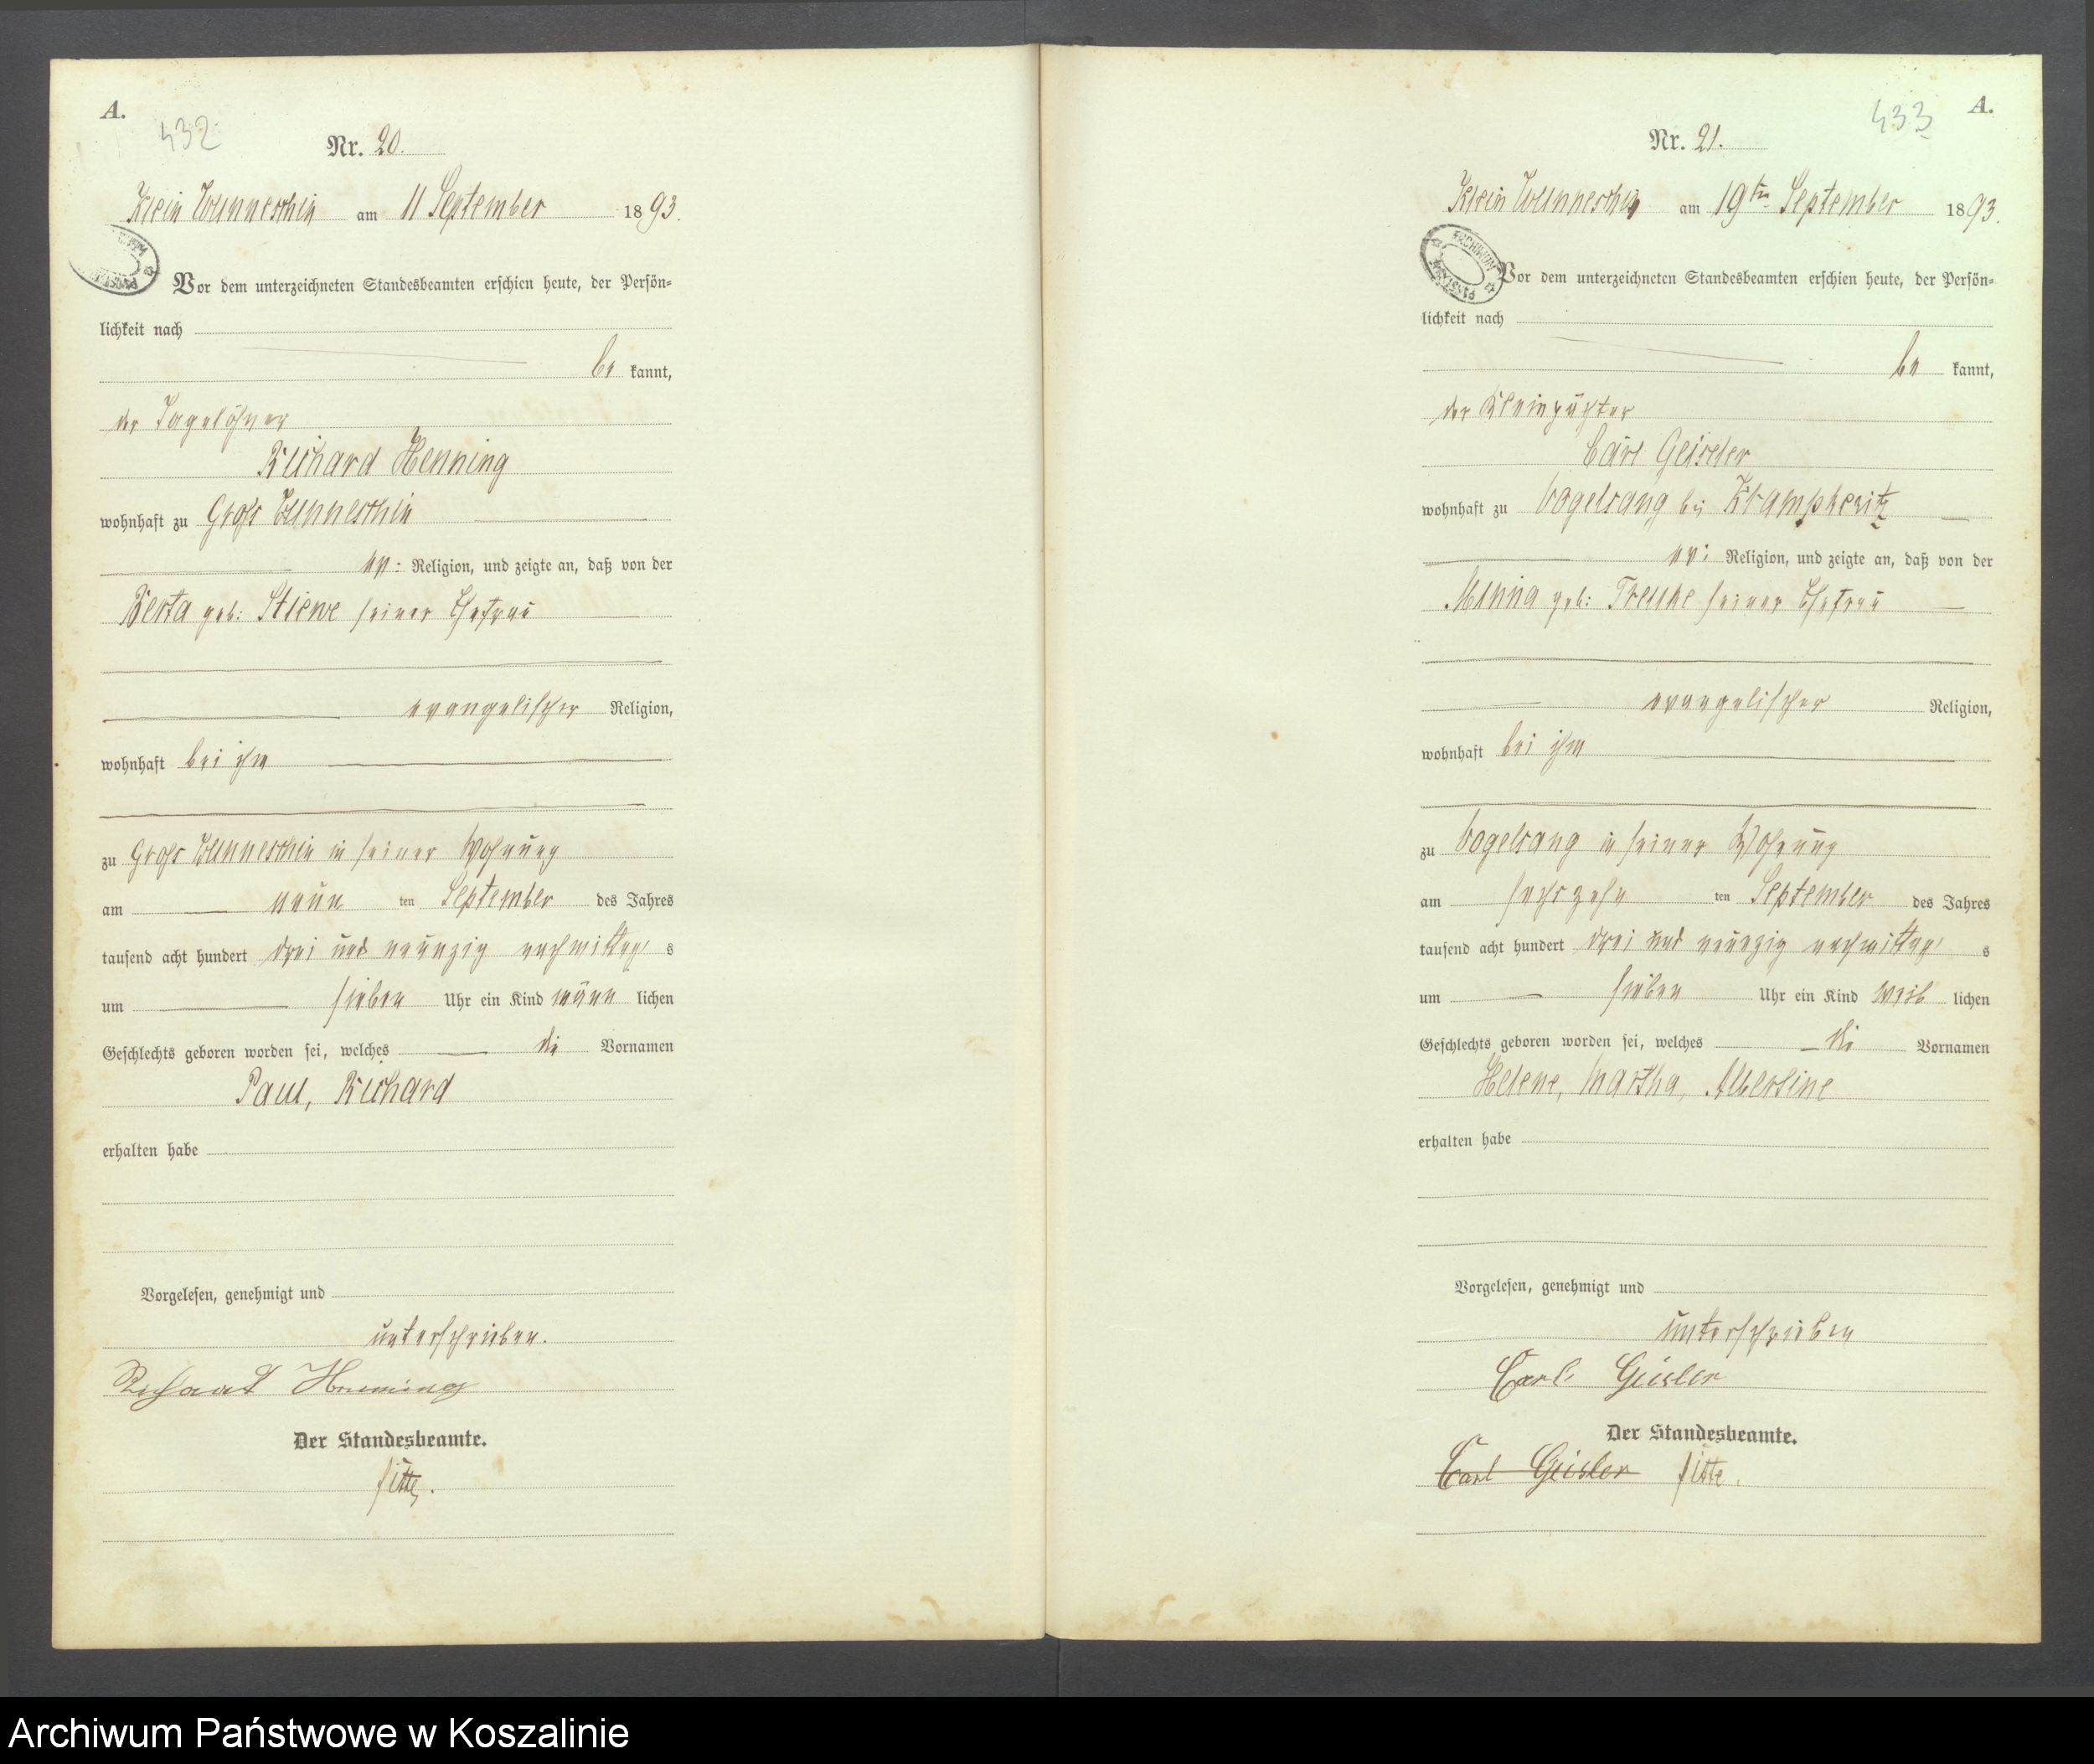 A.
432
Nr. 20.
Klein Wunneschin am 11 September 1893.
Vor dem unterzeichneten Standesbeamten erschien heute, der Persön-
lichkeit nach
be kannt,
der Tagelöhner
Richard Henning
wohnhaft zu Gross Wunneschin
ev: Religion, und zeigte an, daß von der
Berta geb: Stiewe seiner Ehefrau
evangelischer Religion,
wohnhaft bei ihm
zu Gross Wunneschin in seiner Wohnung
am neun ten September des Jahres
tausend acht hundert drei und neunzig nachmittags
um sieben Uhr ein Kind männ lichen
Geschlechts geboren worden sei, welches die Vornamen
Paul, Richard
erhalten habe
Vorgelesen, genehmigt und
unterschrieben.
Richard Henning
Der Standesbeamte.
A.
433
Nr. 21.
Klein Wunneschin am 19ten September 1893.
ARCHIWUM
Vor dem unterzeichneten Standesbeamten erschien heute, der Persön-
lichkeit nach
be kannt,
der Kleinpächter
Carl Geisler
wohnhaft zu Vogelsang bei Krampkewitz
ev: Religion, und zeigte an, daß von der
Minna geb: seiner Ehefrau
evangelischer Religion,
wohnhaft bei ihm
zu Vogelsang in seiner Wohnung
am sechszehn ten September des Jahres
tausend acht hundert drei und neunzig nachmittags
um sieben Uhr ein Kind weib lichen
Geschlechts geboren worden sei, welches die Vornamen
Helene, Martha, Albertine
erhalten habe
Vorgelesen, genehmigt und
unterschrieben
Carl Geisler
Der Standesbeamte.
Carl Geisler
Archiwum Państwowe w Koszalinie